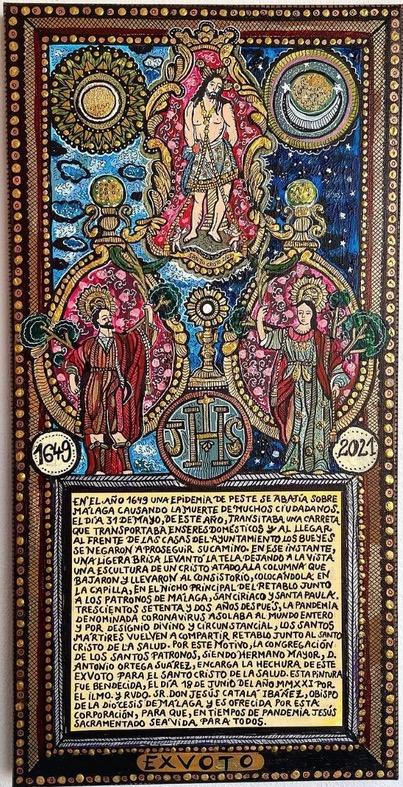 1649
JHS
2021
EN EL AÑO 1649 UNA EPIDEMIA DE PESTE SE ABATÍA SOBRE
MÁLAGA CAUSANDO LA MUERTE DE MUCHOS CIUDADANOS.
EL DÍA 31 DE MAYO, DE ESTE AÑO, TRANSITABA UNA CARRETA
QUE TRANSPORTABA ENSERES DOMÉSTICOS Y AL LLEGAR
AL FRENTE DE LAS CASAS DEL AYUNTAMIENTO LOS BUEYES
SE NEGARON A PROSEGUIR SU CAMINO. EN ESE INSTANTE,
UNA LIGERA BRISA LEVANTÓ LA TELA DEJANDO A LA VISTA
UNA ESCULTURA DE UN CRISTO ATADO A LA COLUMNA QUE
BAJARON Y LLEVARON AL CONSISTORIO, COLOCÁNDOLA EN
LA CAPILLA, EN EL NICHO PRINCIPAL DEL RETABLO JUNTO
A LOS PATRONOS DE MÁLAGA, SAN CIRIACO Y SANTA PAULA.
TRESCIENTOS SETENTA Y DOS AÑOS DESPUÉS, LA PANDEMIA
DENOMINADA CORONAVIRUS ASOLABA AL MUNDO ENTERO
Y POR DESIGNIO DIVINO Y CIRCUNSTANCIAL, LOS SANTOS
MÁRTIRES VUELVEN A COMPARTIR RETABLO JUNTO AL SANTO
CRISTO DE LA SALUD. POR ESTE MOTIVO, LA CONGREGACIÓN
DE LOS SANTOS PATRONOS, SIENDO HERMANO MAYOR, D.
ANTONIO ORTEGA SUÁREZ, ENCARGA LA HECHURA DE ESTE
EXVOTO PARA EL SANTO CRISTO DE LA SALUD. ESTA PINTURA
FUE BENDECIDA, EL DÍA 18 DE JUNIO DEL AÑO MMXXI POR
EL ILMO. Y RVDO. SR. DON JESÚS CATALÁ IBÁÑEZ, OBISPO
DE LA DIÓCESIS DE MÁLAGA, Y ES OFRECIDA POR ESTA
CORPORACIÓN, PARA QUE, EN TIEMPOS DE PANDEMIA JESÚS
SACRAMENTADO SEA VIDA PARA TODOS.
EXVOTO